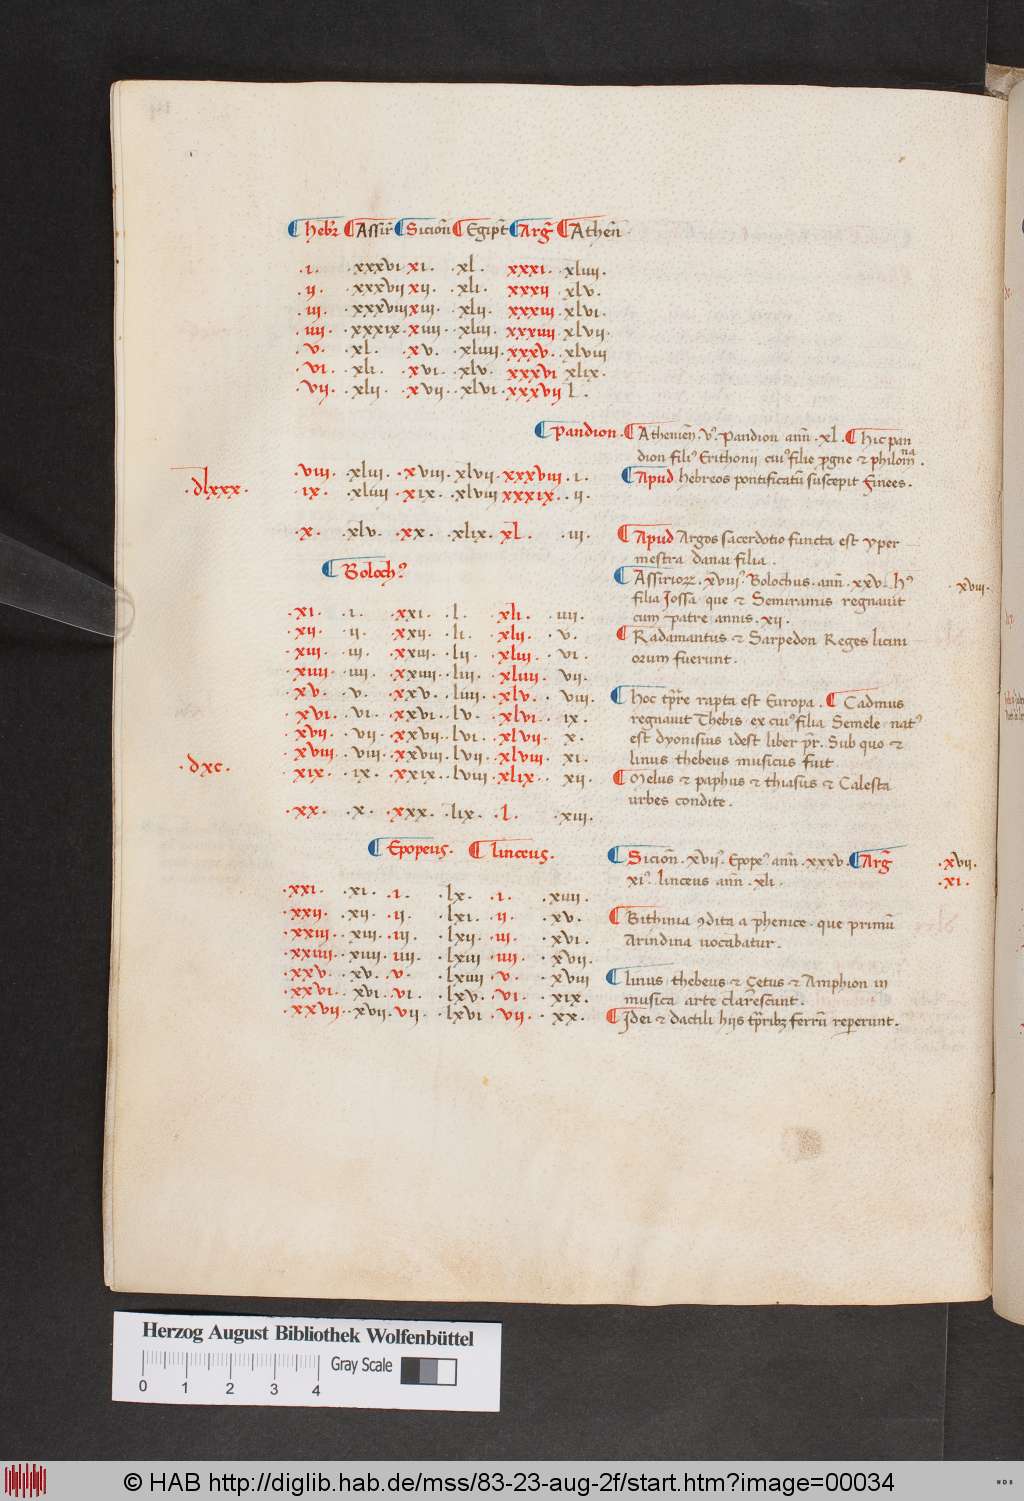 hebr̃ Assir̃ Sicioñ Egipt̃ Arg̃ Atheñ
.i. .xxxvi xi. .xl. xxxi. .xliiii.
.ii. .xxxvii xii. .xli. xxxii xlv.
.iii. .xxxviii xiii. .xlii. .xxxiii .xlvi.
.iiii .xxxix. xiiii. .xliii. xxxiiii xlvii.
.v. .xl. .xv. .xliiii. xxxv. .xlviii
.vi .xli. .xvi. .xlv. .xxxvi xlix.
.vii. .xlii. .xvii. .xlvi .xxxvii l.
Pandion. Athenieñ. v⁹. Pandion anñ .xl. hic pan
dion fili⁹ Erithonii cui⁹ filie progne ⁊ philomna.
.viii. .xliii. .xviii. xlvii. xxxviii. i. Apud hebreos pontificatũ suscepit finees.
.dlxxx. .ix. .xliiii .xix. .xlviii xxxix. . ii.
.x. .xlv. .xx. .xlix. xl. .iii. Apud Argos sacerdotio functa est yper
mestra danai filia.
Boloch⁹ Assirioꝝ .xviii⁹. Bolochus .anñ .xxv. h⁹ .xviii.
filia Jossa que ⁊ Semiramis regnauit
cum patre annis .xii.
.xi. .i. .xxi. .l. .xli. .iiii.
.xii. .ii. .xxii. .li. .xlii. .v.
.xiii. .iii. .xxiii. .lii. .xliii. .vi. Radamantus ⁊ Sarpedon Reges licini
.xiiii. .iiii. .xxiiii. .liii. .xliiii. vii. orum fuerunt.
.xv. .v. .xxv. .liiii. .xlv. viii. hoc tp̃re rapta est Europa. Cadmus
.xvi. .vi. .xxvi. .lv. .xlvi. .ix. regnauit Thebis ex cui⁹ filia Semele nat⁹
.xvii. .vii. .xxvii. .lvi. .xlvii. .x. est dyonisius idest liber pr̃. Sub quo ⁊
.xviii. .viii. .xxviii. lvii. .xlviii. xi. linus thebeus musicus fuit.
.dxc. .xix. .ix. .xxix. .lviii .xlix. . xii. Melus ⁊ paphus ⁊ thiasus ⁊ Calesta
urbes condite.
.xx. .x. .xxx. .lix. .l. .xiii.
Epopeus. linceus. Sicioñ. xvii⁹. Epope⁹ anñ .xxxv. Arg̃ .xvii.
xi⁹. linceus anñ .xli. .xi.
.xxi. .xi. .i. .lx. .i. .xiiii.
.xxii. .xii. .ii. .lxi. .ii. .xv. Bithinia ꝯdita a phenice. que primũ
.xxiii. .xiii. .iii. .lxii. .iii. .xvi. Arindina uocabatur.
.xxiiii. .xiiii .iiii. .lxiii .iiii. .xvii.
.xxv. .xv. .v. .lxiiii .v. .xviii linus thebeus ⁊ Cetus ⁊ Amphion in
.xxvi. .xvi. vi. .lxv. .vi. .xix. musica arte clarescunt.
.xxvii. .xvii. vii. .lxvi .vii. .xx. Idei ⁊ dactili hiis tp̃ribꝫ ferrũ reperunt.
Herzog August Bibliothek Wolfenbüttel
Gray Scale
0 1 2 3 4
© HAB http://diglib.hab.de/mss/83-23-aug-2f/start.htm?image=00034